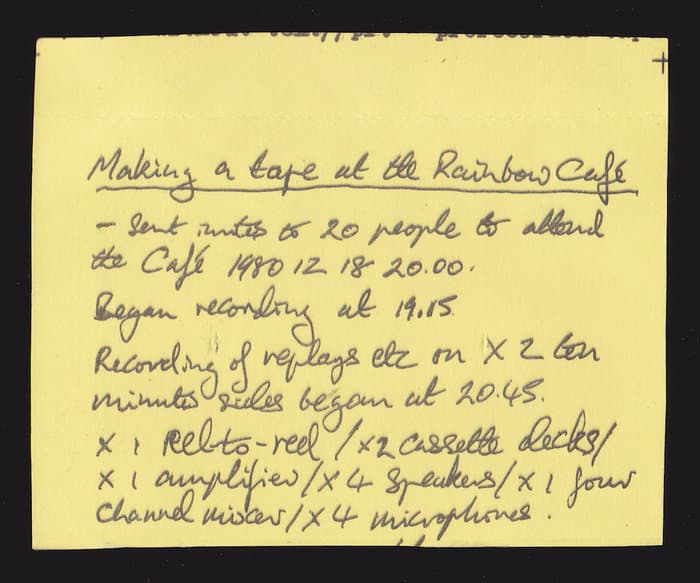 Making a tape at the Rainbow Café
- Sent invites to 20 people to attend
the Café 1980 12 18 20.00.
Began recording at 19.15
Recording of replays etc on X 2 ten
minutes sides began at 20.45.
x 1 reel-to-reel / x2 cassette decks/
x 1 amplifier / x 4 speakers / x 1 four
channel mixer / x 4 microphones.